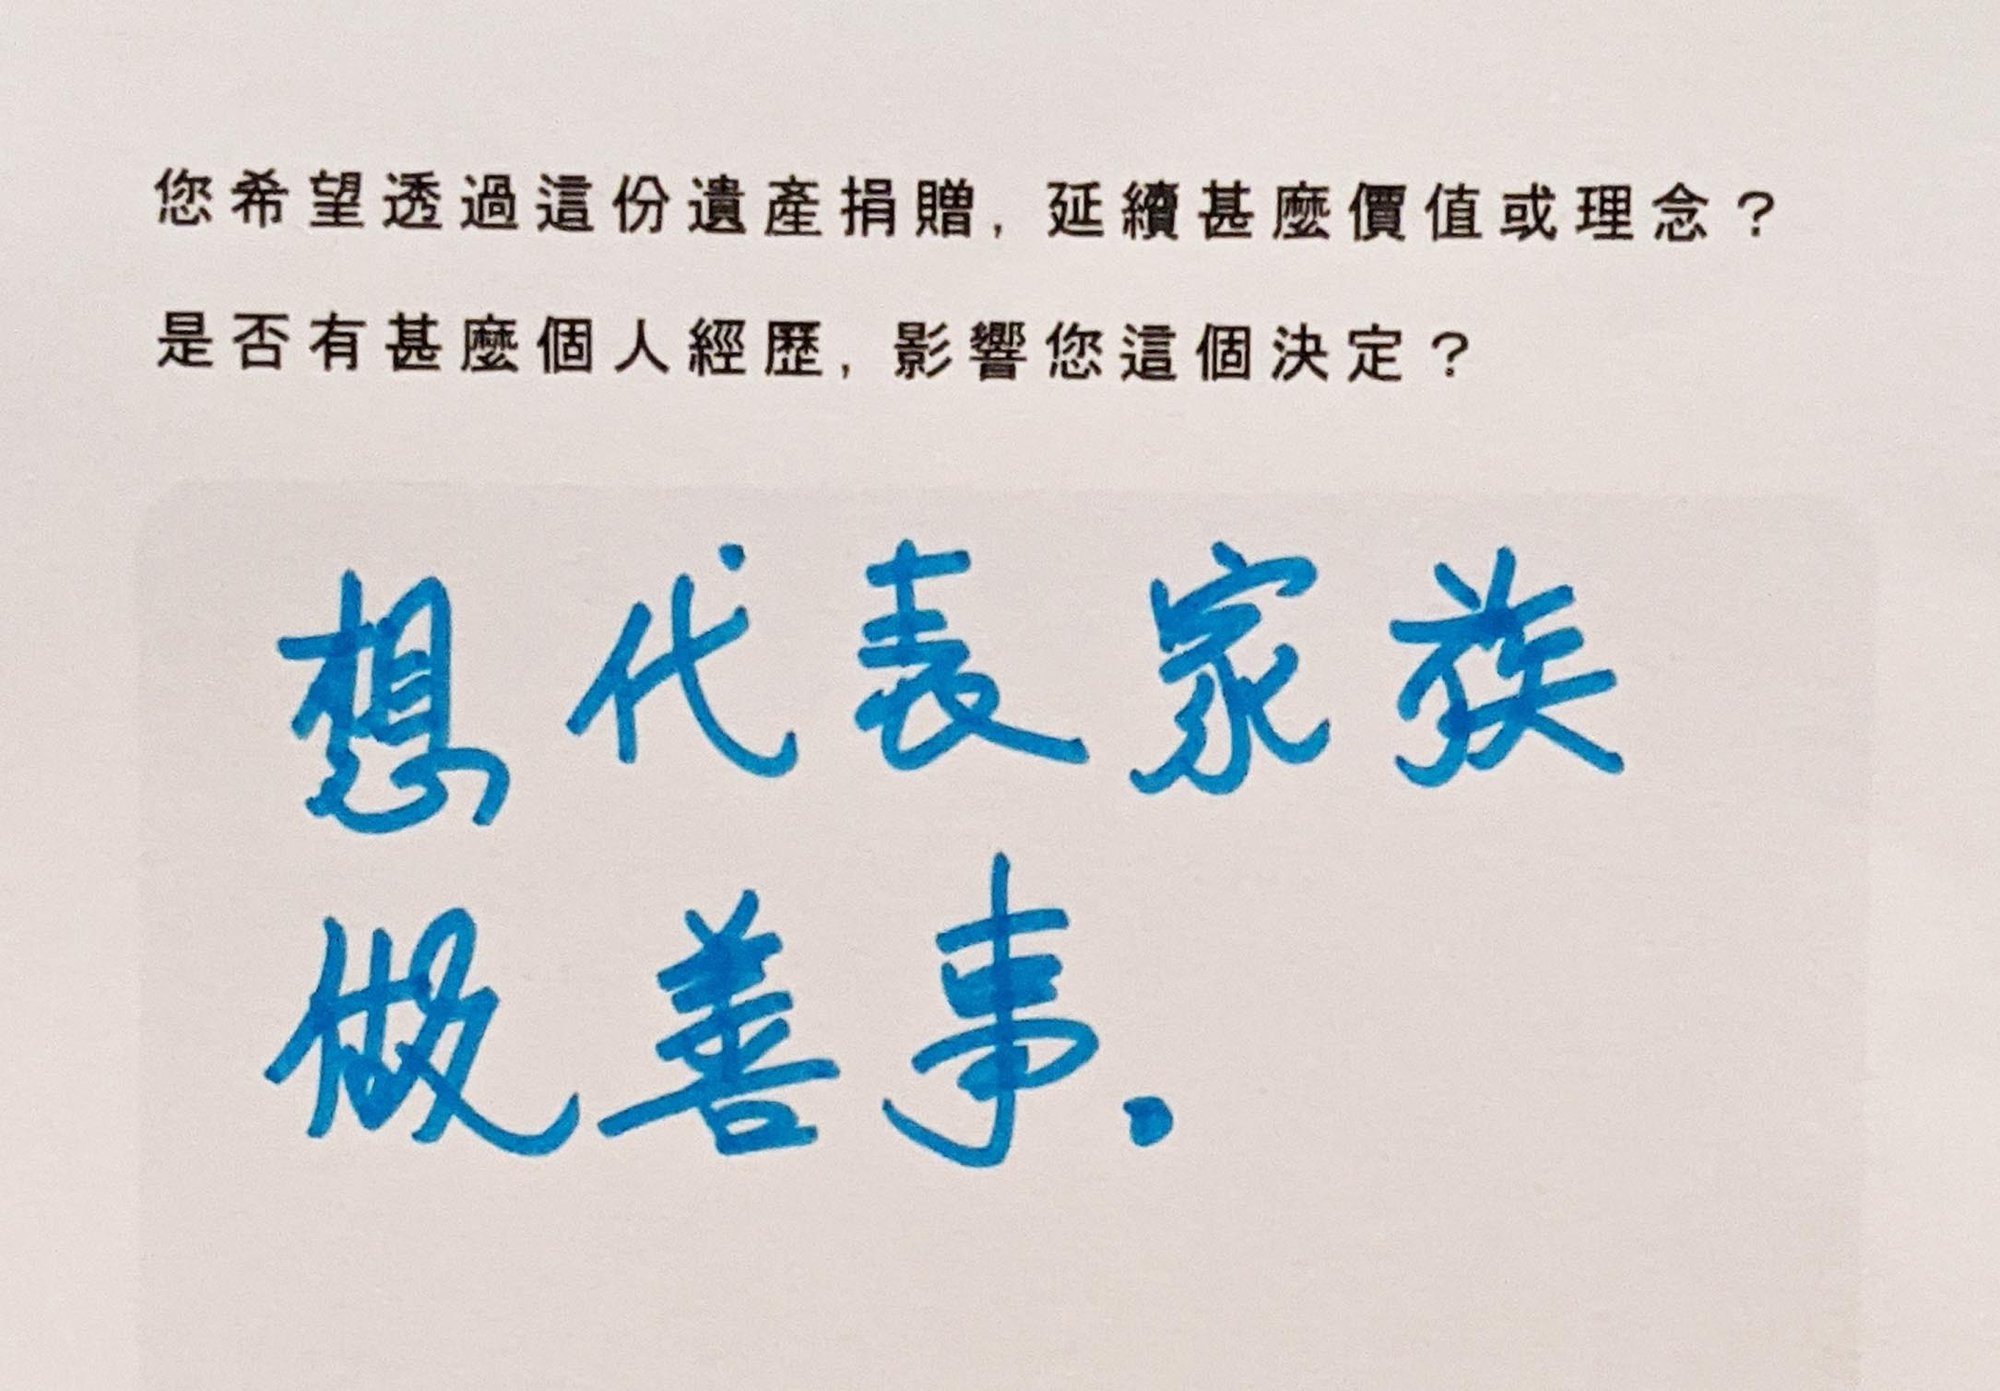 您希望透過這份遺產捐贈, 延續甚麼價值或理念?
是否有甚麼個人經歷, 影響您這個決定?
想代表家族
做善事.